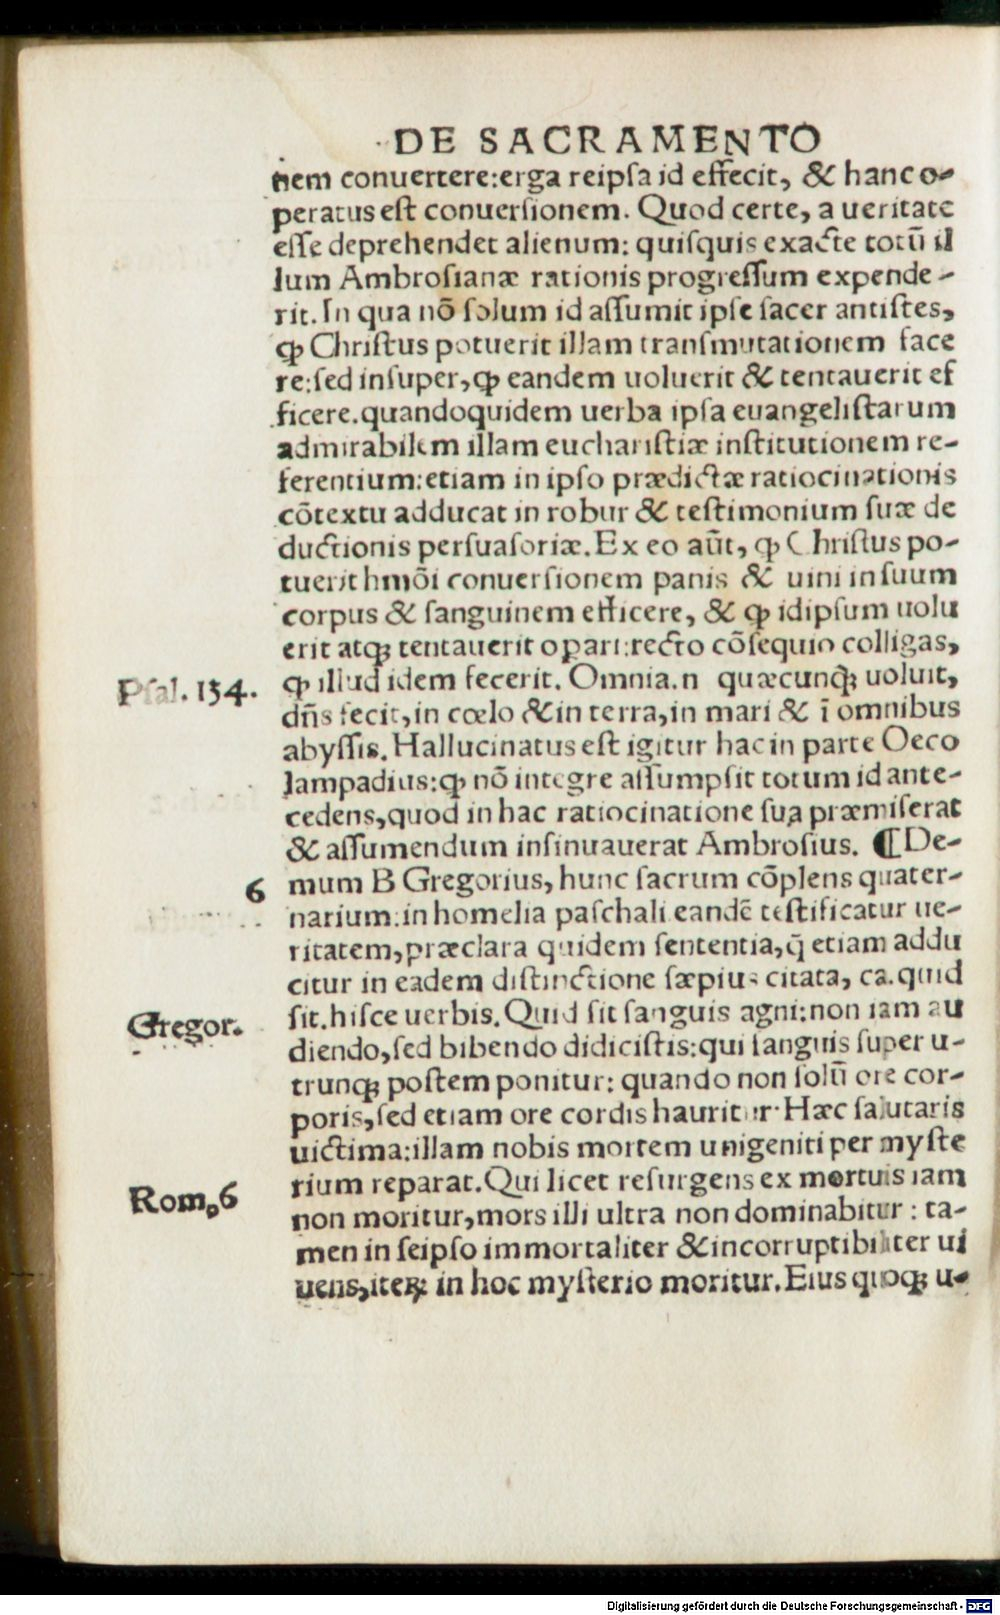 DE SACRAMENTO
nem conuertere:erga reipſa id effecit, & hanc o-
peratus eſt conuerſionem. Quod certe, a ueritate
eſſe deprehendet alienum: quiſquis exacte totū il
lum Ambroſianæ rationis progreſſum expende-
rit. In qua nō ſolum id aſſumit ipſe ſacer antiſtes,
ꝙ Chriſtus potuerit illam tranſmutationem face
re:ſed inſuper, ꝙ eandem uoluerit & tentauerit ef
ficere. quandoquidem uerba ipſa euangeliſtarum
admirabilem illam euchariſtiæ inſtitutionem re-
ferentium:etiam in ipſo prædictæ ratiocinationis
cōtextu adducat in robur & teſtimonium ſuæ de
ductionis perſuaſoriæ. Ex eo aūt, ꝙ Chriſtus po-
tuerit hmōi conuerſionem panis & uini in ſuum
corpus & ſanguinem efficere, & ꝙ idipſum uolu
erit atqꝫ tentauerit opari:recto cōſequio colligas,
Pſal. 134.
ꝙ illud idem fecerit. Omnia.n quæcunqꝫ uoluit,
dn̄s fecit, in cœlo & in terra, in mari & ī omnibus
abyſſis. Hallucinatus eſt igitur hac in parte Oeco
lampadius:ꝙ nō integre aſſumpſit totum id ante-
cedens, quod in hac ratiocinatione ſua præmiſerat
& aſſumendum inſinuauerat Ambroſius. ¶ De-
6
mum B Gregorius, hunc ſacrum cōplens quater-
narium:in homelia paſchali eandē teſtificatur ue-
ritatem, præclara quidem ſententia, q̄ etiam addu
citur in eadem diſtinctione ſæpius citata, ca. quid
ſit. hiſce uerbis. Quid ſit ſanguis agni:non iam au
Gregor.
diendo, ſed bibendo didiciſtis:qui ſanguis ſuper u-
trunqꝫ poſtem ponitur: quando non ſolū ore cor-
poris, ſed etiam ore cordis hauritur. Hæc ſalutaris
uictima:illam nobis mortem unigeniti per myſte
rium reparat. Qui licet reſurgens ex mortuis iam
Rom. 6
non moritur, mors illi ultra non dominabitur: ta-
men in ſeipſo immortaliter & incorruptibiliter ui
uens, iteꝝ in hoc myſterio moritur. Eius quoqꝫ u-
Digitalisierung gefördert durch die Deutsche Forschungsgemeinschaft - DFG